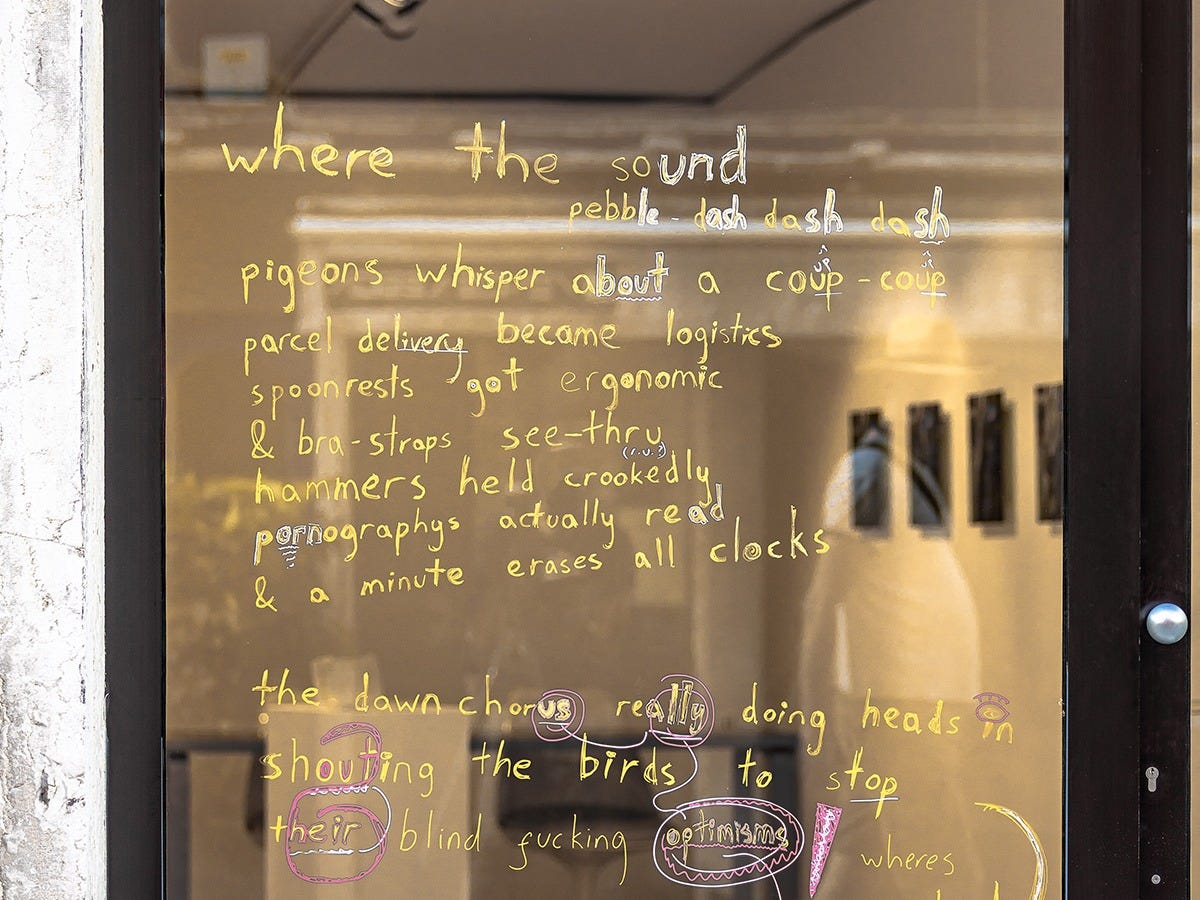 where the sound
pebble-dash dash dash
pigeons whisper about a coup-coup
parcel delivery became logistics
spoonrests got ergonomic
& bra-straps see-thru
(r.u.?)
hammers held crookedly
pornographys actually read
& a minute erases all clocks
the dawn chorus really doing heads in
shouting the birds to stop
their blind fucking optimisms
wheres